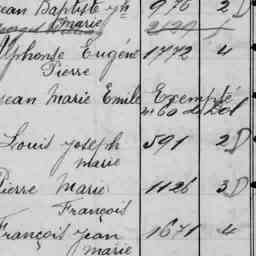 Jean Baptiste 976 2
Marie
Alphonse Eugène 1772 4
Pierre
Jean Marie Emile Exempté
no 60 de Lel
Louis Joseph 591 2
Marie
Pierre Marie 1126 3
François
François Jean 1671 4
Marie